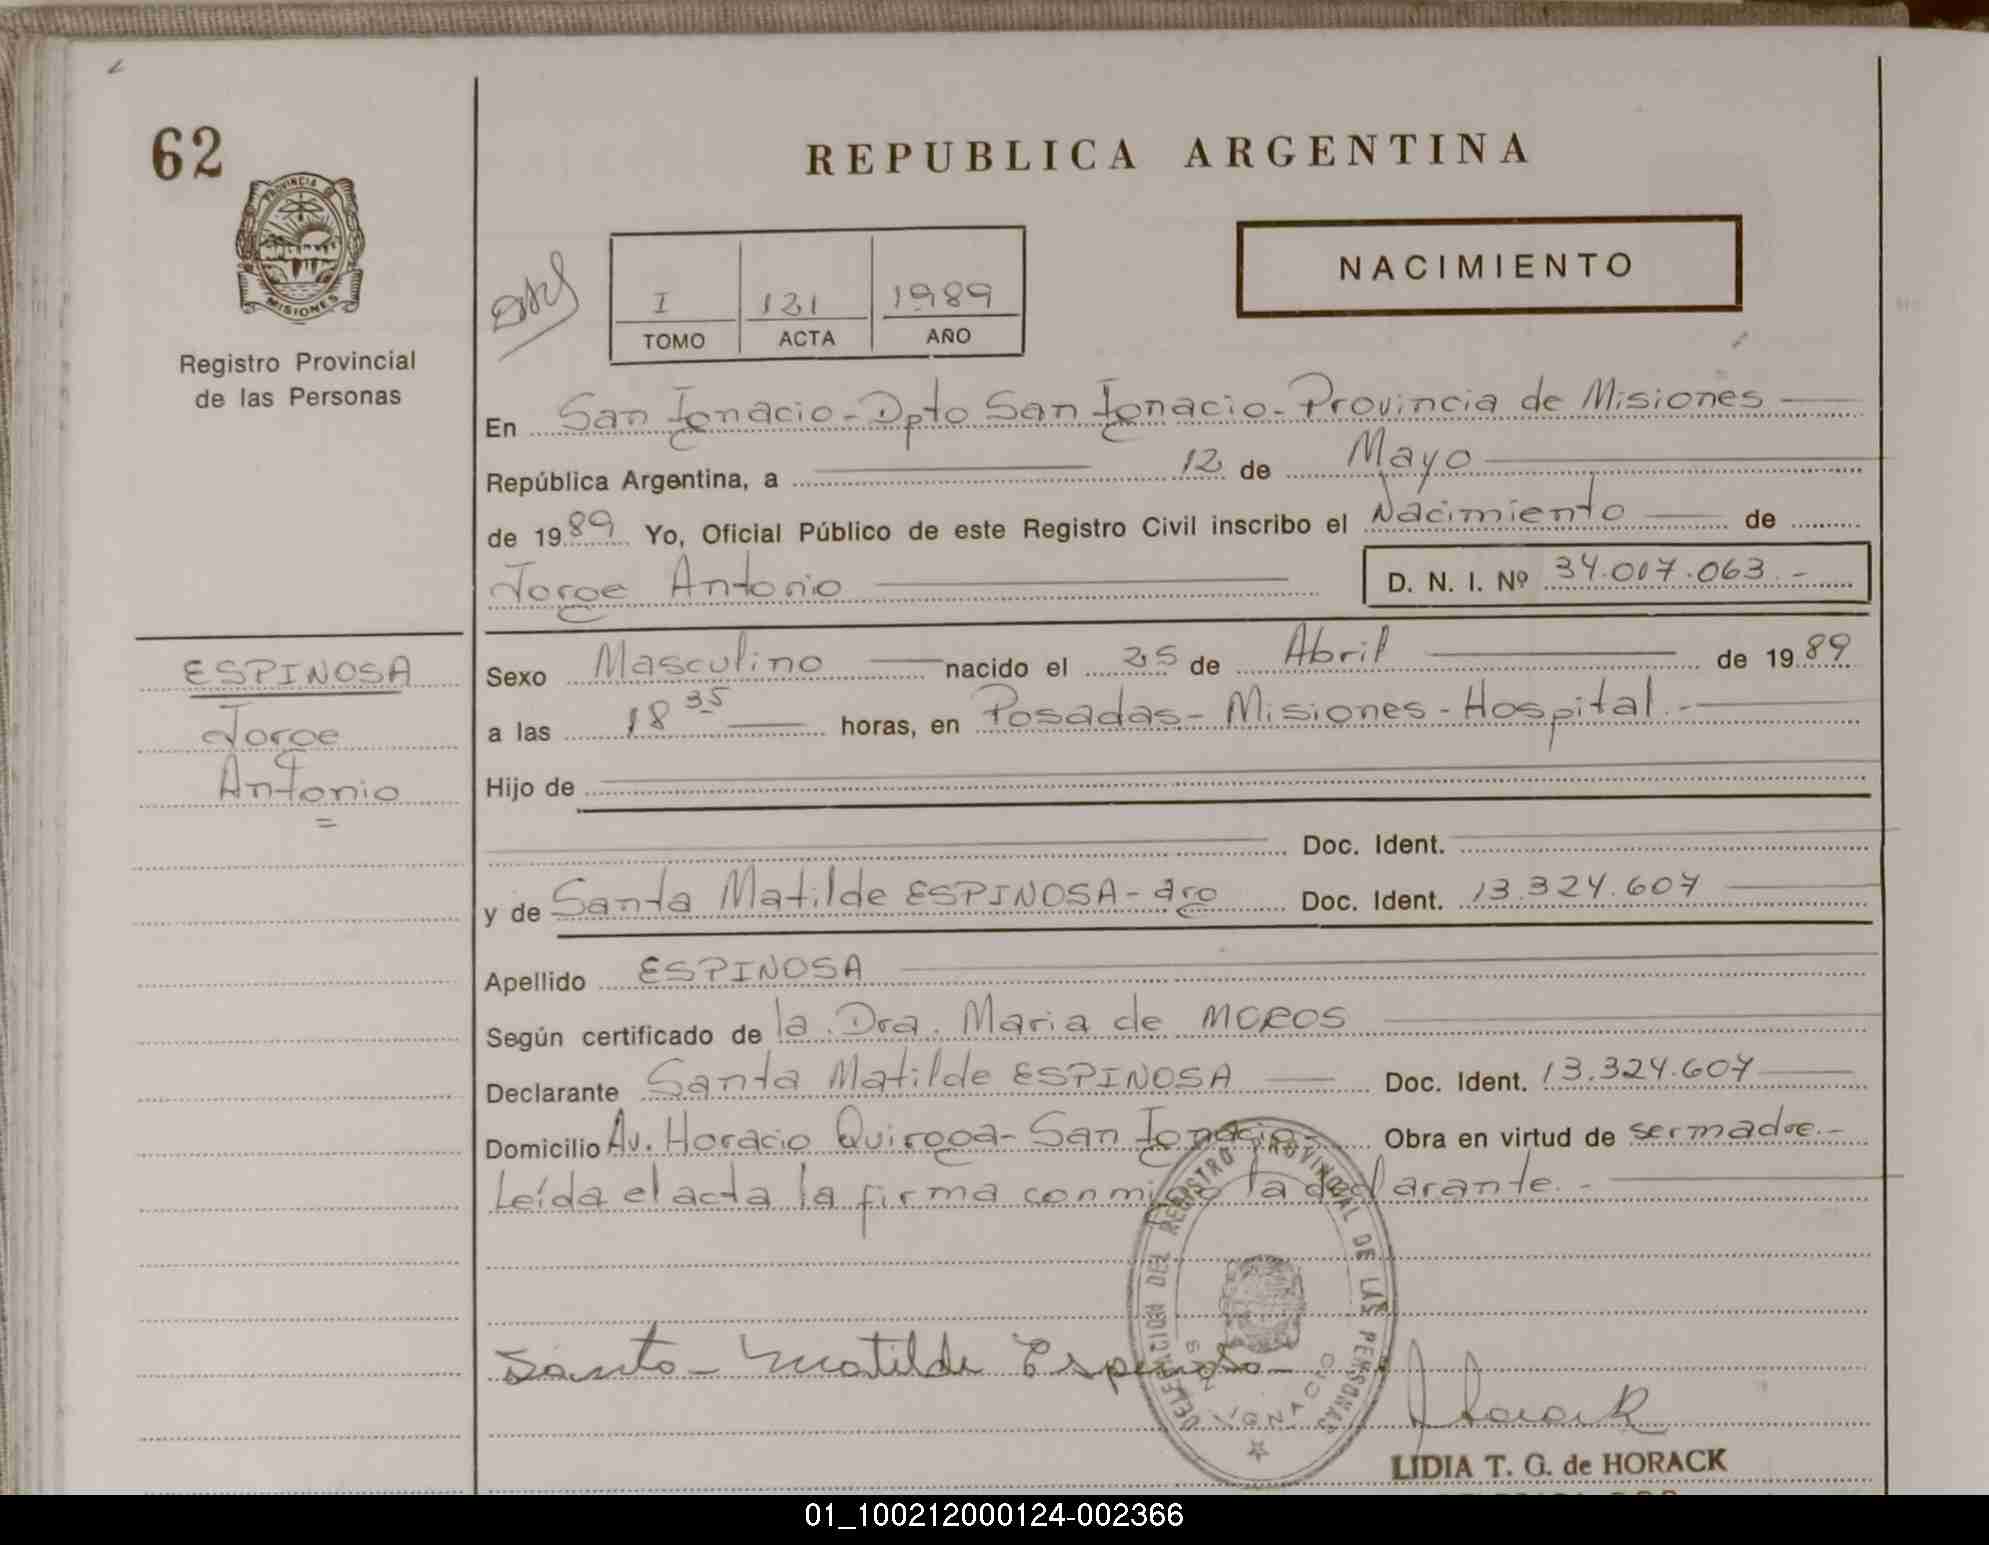 62
REPUBLICA ARGENTINA
PROVINCIA DE
MISIONES
Registro Provincial
de las Personas
NACIMIENTO
I 121 1989
TOMO ACTA AÑO
En San Ignacio - Dpto San Ignacio - Provincia de Misiones
República Argentina, a 12 de Mayo
de 1989 Yo, Oficial Público de este Registro Civil inscribo el Nacimiento de
Jorge Antonio D. N. I. Nº 34.007.063.-
ESPINOSA
Jorge
Antonio
Sexo Masculino nacido el 25 de Abril de 1989
a las 18 35 horas, en Posadas - Misiones - Hospital.-
Hijo de
Doc. Ident.
y de Santa Matilde ESPINOSA - arg Doc. Ident. 13.324.607
Apellido ESPINOSA
Según certificado de la Dra. Maria de MOROS
Declarante Santa Matilde ESPINOSA Doc. Ident. 13.324.607
Domicilio Av. Horacio Quiroga - San Ignacio - Obra en virtud de ser madre.-
Leída el acta la firma conmigo la declarante.-
DELEGACION DEL REGISTRO PROVINCIAL DE LAS PERSONAS
SAN IGNACIO
Santa - Matilde Espinosa -
Horack
LIDIA T. G. de HORACK
01_100212000124-002366